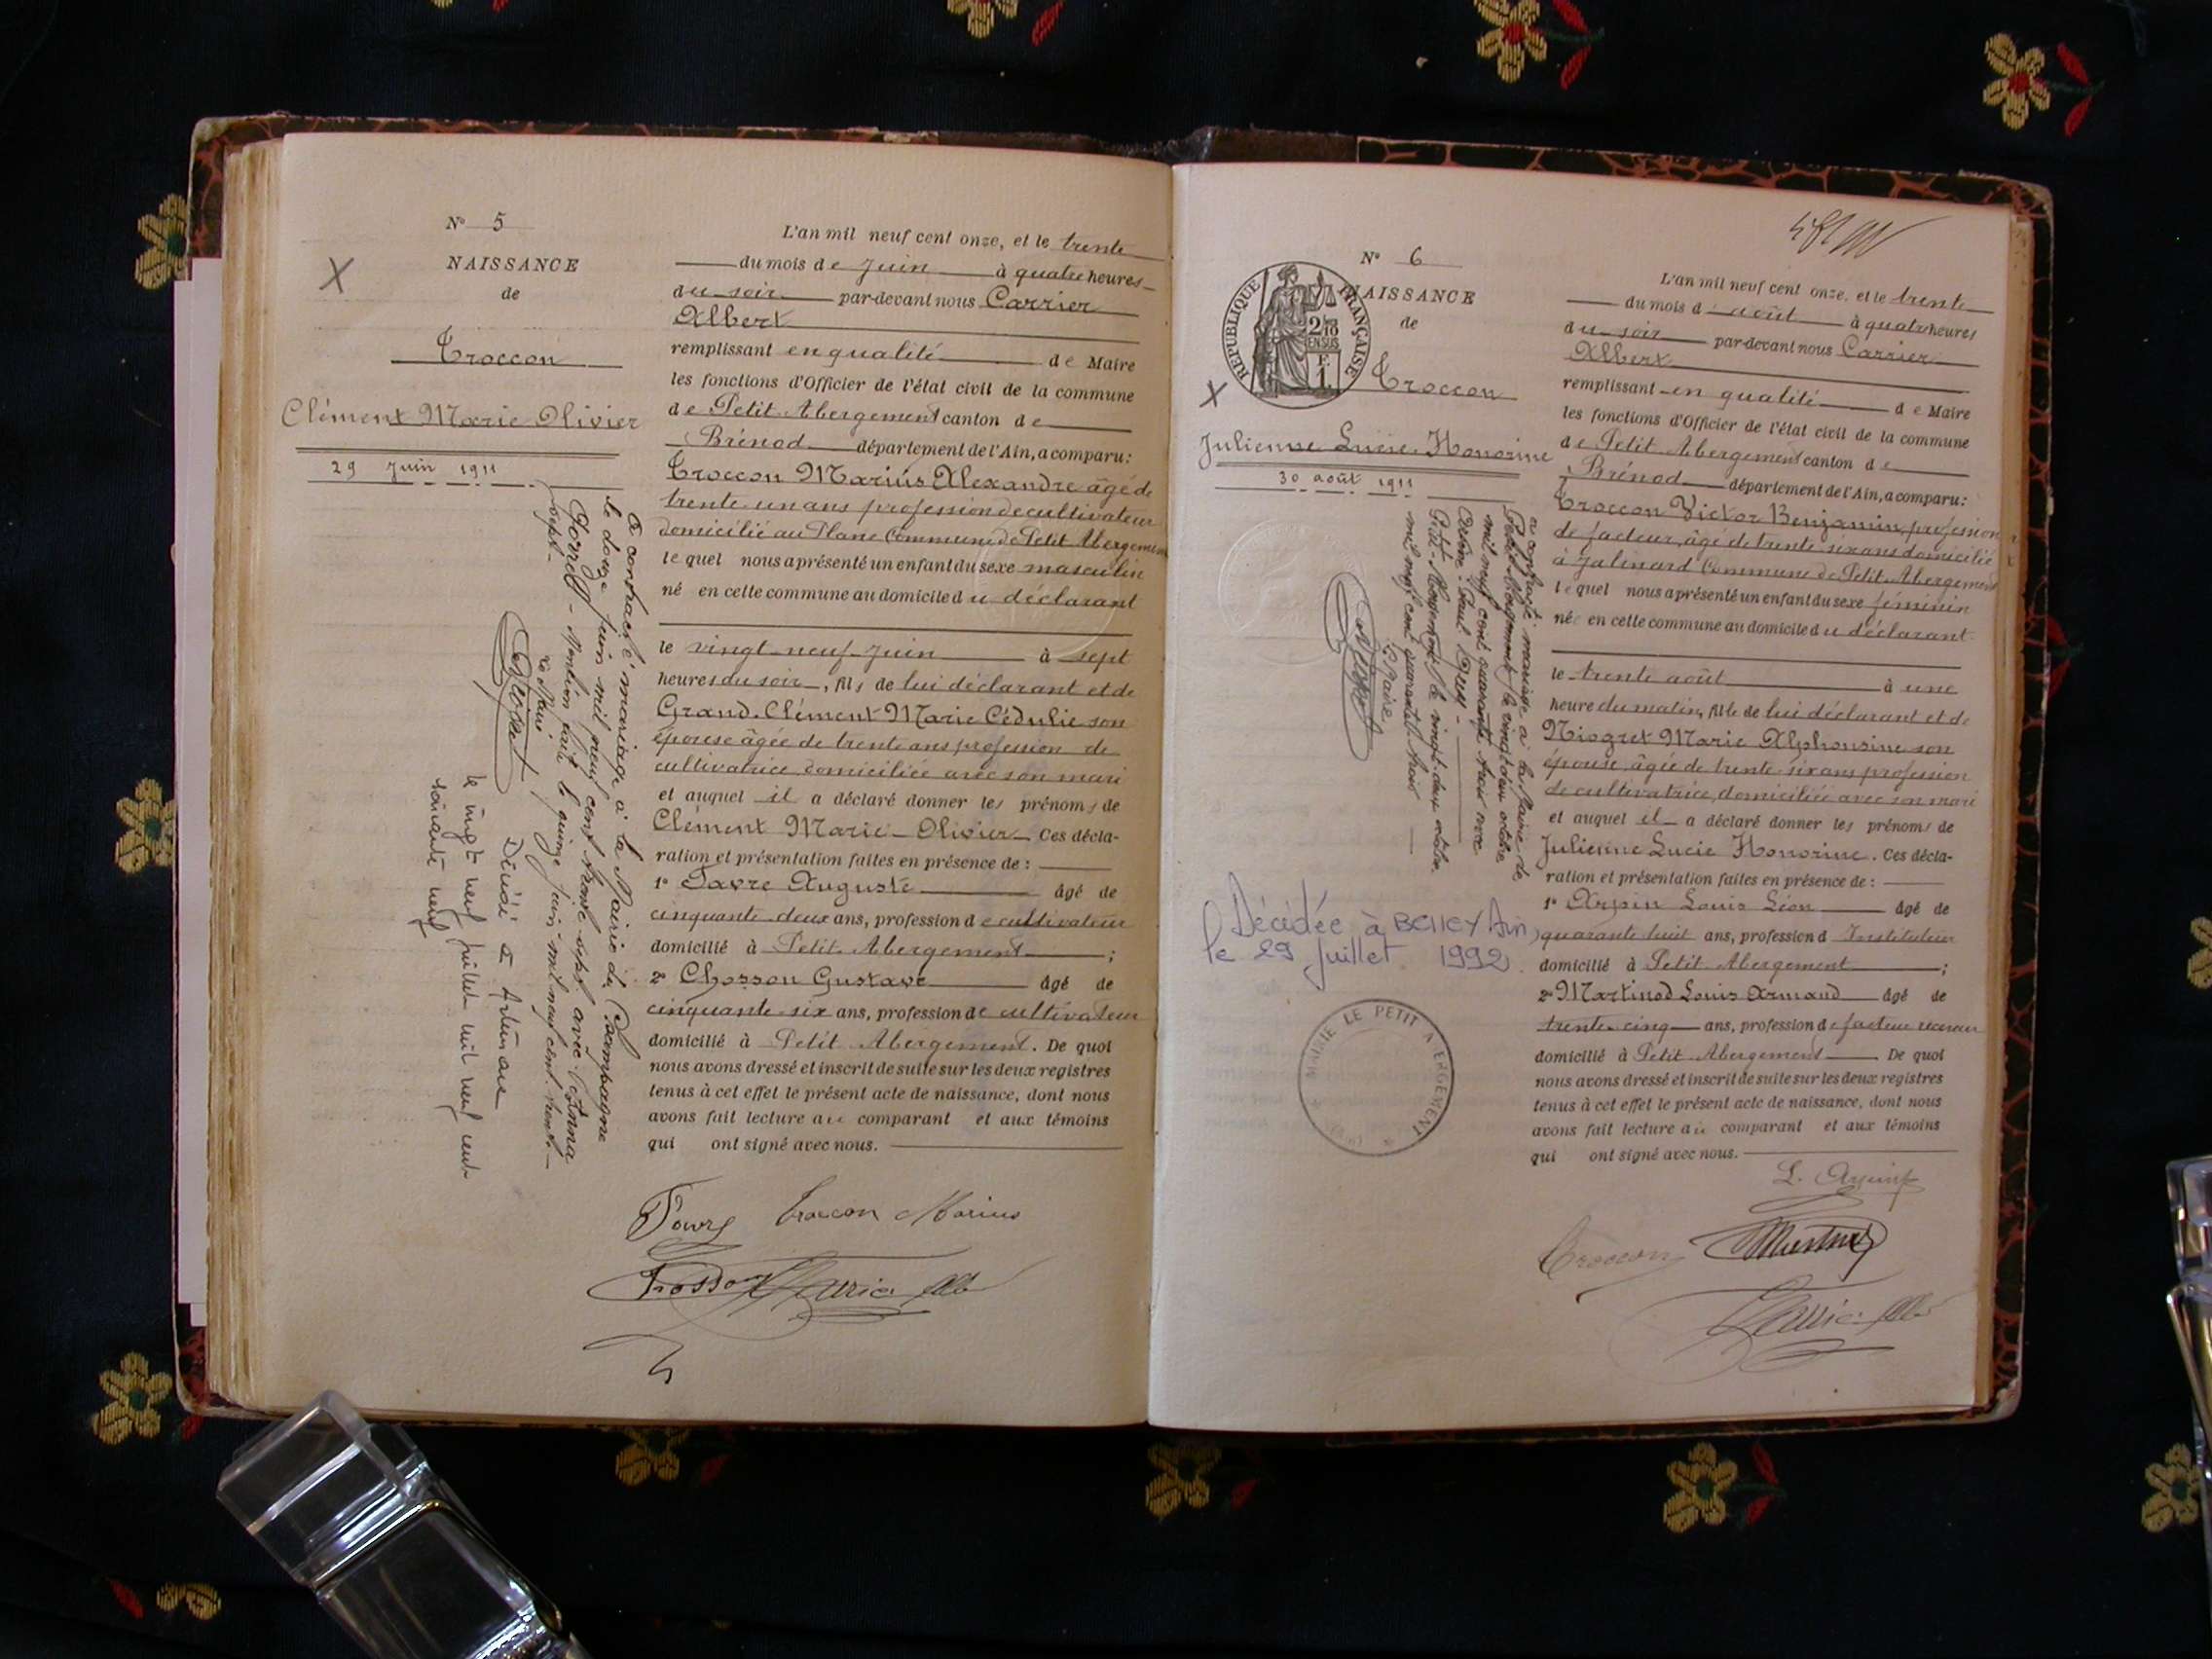 N° 5
NAISSANCE
de
Troccon
Clément Marie Olivier
29 Juin 1911
A contracté mariage à la Mairie de Champagne
le douze juin mil neuf cent trente sept avec Vonna
Mention faite le quinze juin mil neuf cent trente
sept.
Le Maire
Décédé à Artemare
le vingt neuf juillet mil neuf cent
soixante neuf
L'an mil neuf cent onze, et le trente
du mois de Juin à quatre heures
du soir par-devant nous Carrier
Albert
remplissant en qualité de Maire
les fonctions d'Officier de l'état civil de la commune
de Petit Abergement canton de
Brénod département de l'Ain, a comparu:
Troccon Marius Alexandre âgé de
trente un ans profession de cultivateur
domicilié au Plane Commune de Petit Abergement
lequel nous a présenté un enfant du sexe masculin
né en cette commune au domicile du déclarant
le vingt-neuf Juin à sept
heures du soir, fils de lui déclarant et de
Grand Clément Marie Cédulie son
épouse âgée de trente ans profession de
cultivatrice domiciliée avec son mari
et auquel il a déclaré donner les prénoms de
Clément Marie Olivier Ces décla-
ration et présentation faites en présence de :
1° Favre Auguste âgé de
cinquante-deux ans, profession de cultivateur
domicilié à Petit Abergement ;
2° Chosson Gustave âgé de
cinquante six ans, profession de cultivateur
domicilié à Petit Abergement. De quoi
nous avons dressé et inscrit de suite sur les deux registres
tenus à cet effet le présent acte de naissance, dont nous
avons fait lecture au comparant et aux témoins
qui ont signé avec nous.
Favre Troccon Marius
Chosson Carrier Alb
N° 6
NAISSANCE
de
RÉPUBLIQUE FRANÇAISE
2/10
EN SUS
F.
1.
Troccon
Julienne Lucie Honorine
30 août 1911
a contracté mariage à la Mairie de
Petit-Abergement le vingt deux octobre
mil neuf cent quarante trois avec
Petit-Abergement le vingt-deux octobre
mil neuf cent quarante trois
Le Maire,
Décédée à BELLEY Ain,
le 29 juillet 1992.
MAIRIE LE PETIT ABERGEMENT
L'an mil neuf cent onze, et le trente
du mois d'août à quatre heures
du soir par-devant nous Carrier
Albert
remplissant en qualité de Maire
les fonctions d'Officier de l'état civil de la commune
de Petit Abergement canton de
Brénod département de l'Ain, a comparu:
Troccon Victor Benjamin, profession
de facteur, âgé de trente six ans domicilié
à Jalinard Commune de Petit Abergement
lequel nous a présenté un enfant du sexe féminin
née en cette commune au domicile du déclarant
le trente août à une
heure du matin, fille de lui déclarant et de
Niogret Marie Alphonsine son
épouse, âgée de trente-six ans profession
de cultivatrice, domiciliée avec son mari
et auquel il a déclaré donner les prénoms de
Julienne Lucie Honorine. Ces décla-
ration et présentation faites en présence de :
1° Arpin Louis Léon âgé de
quarante huit ans, profession d'Instituteur
domicilié à Petit Abergement ;
2° Martinod Louis Armand âgé de
trente-cinq ans, profession de facteur receveur
domicilié à Petit Abergement De quoi
nous avons dressé et inscrit de suite sur les deux registres
tenus à cet effet le présent acte de naissance, dont nous
avons fait lecture au comparant et aux témoins
qui ont signé avec nous.
L. Arpin
Troccon